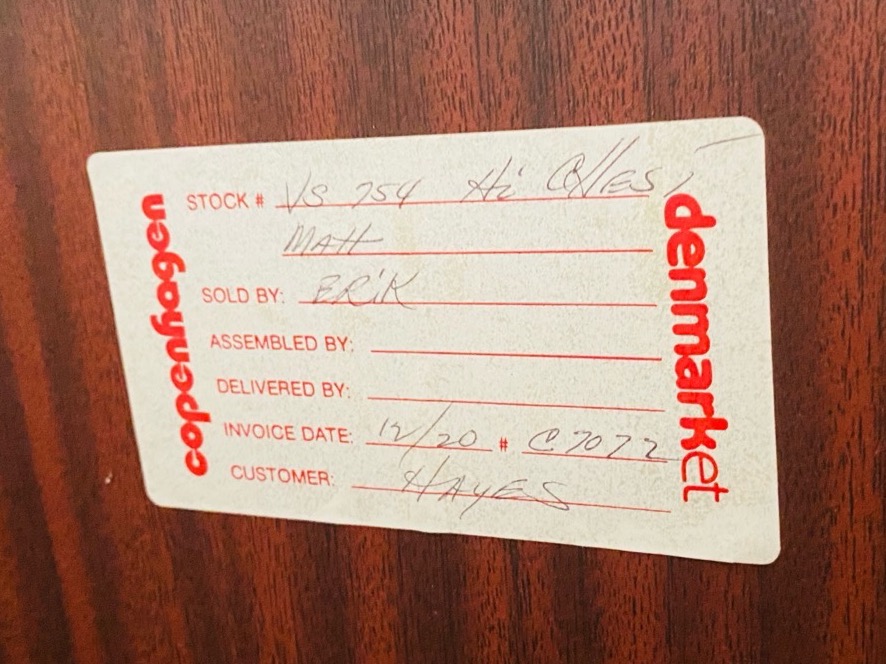 copenhagen
STOCK # VS 754 Hi
MAH
SOLD BY: ERiK
ASSEMBLED BY:
DELIVERED BY:
INVOICE DATE: 12/20 # C7072
CUSTOMER: HAYES
denmarket